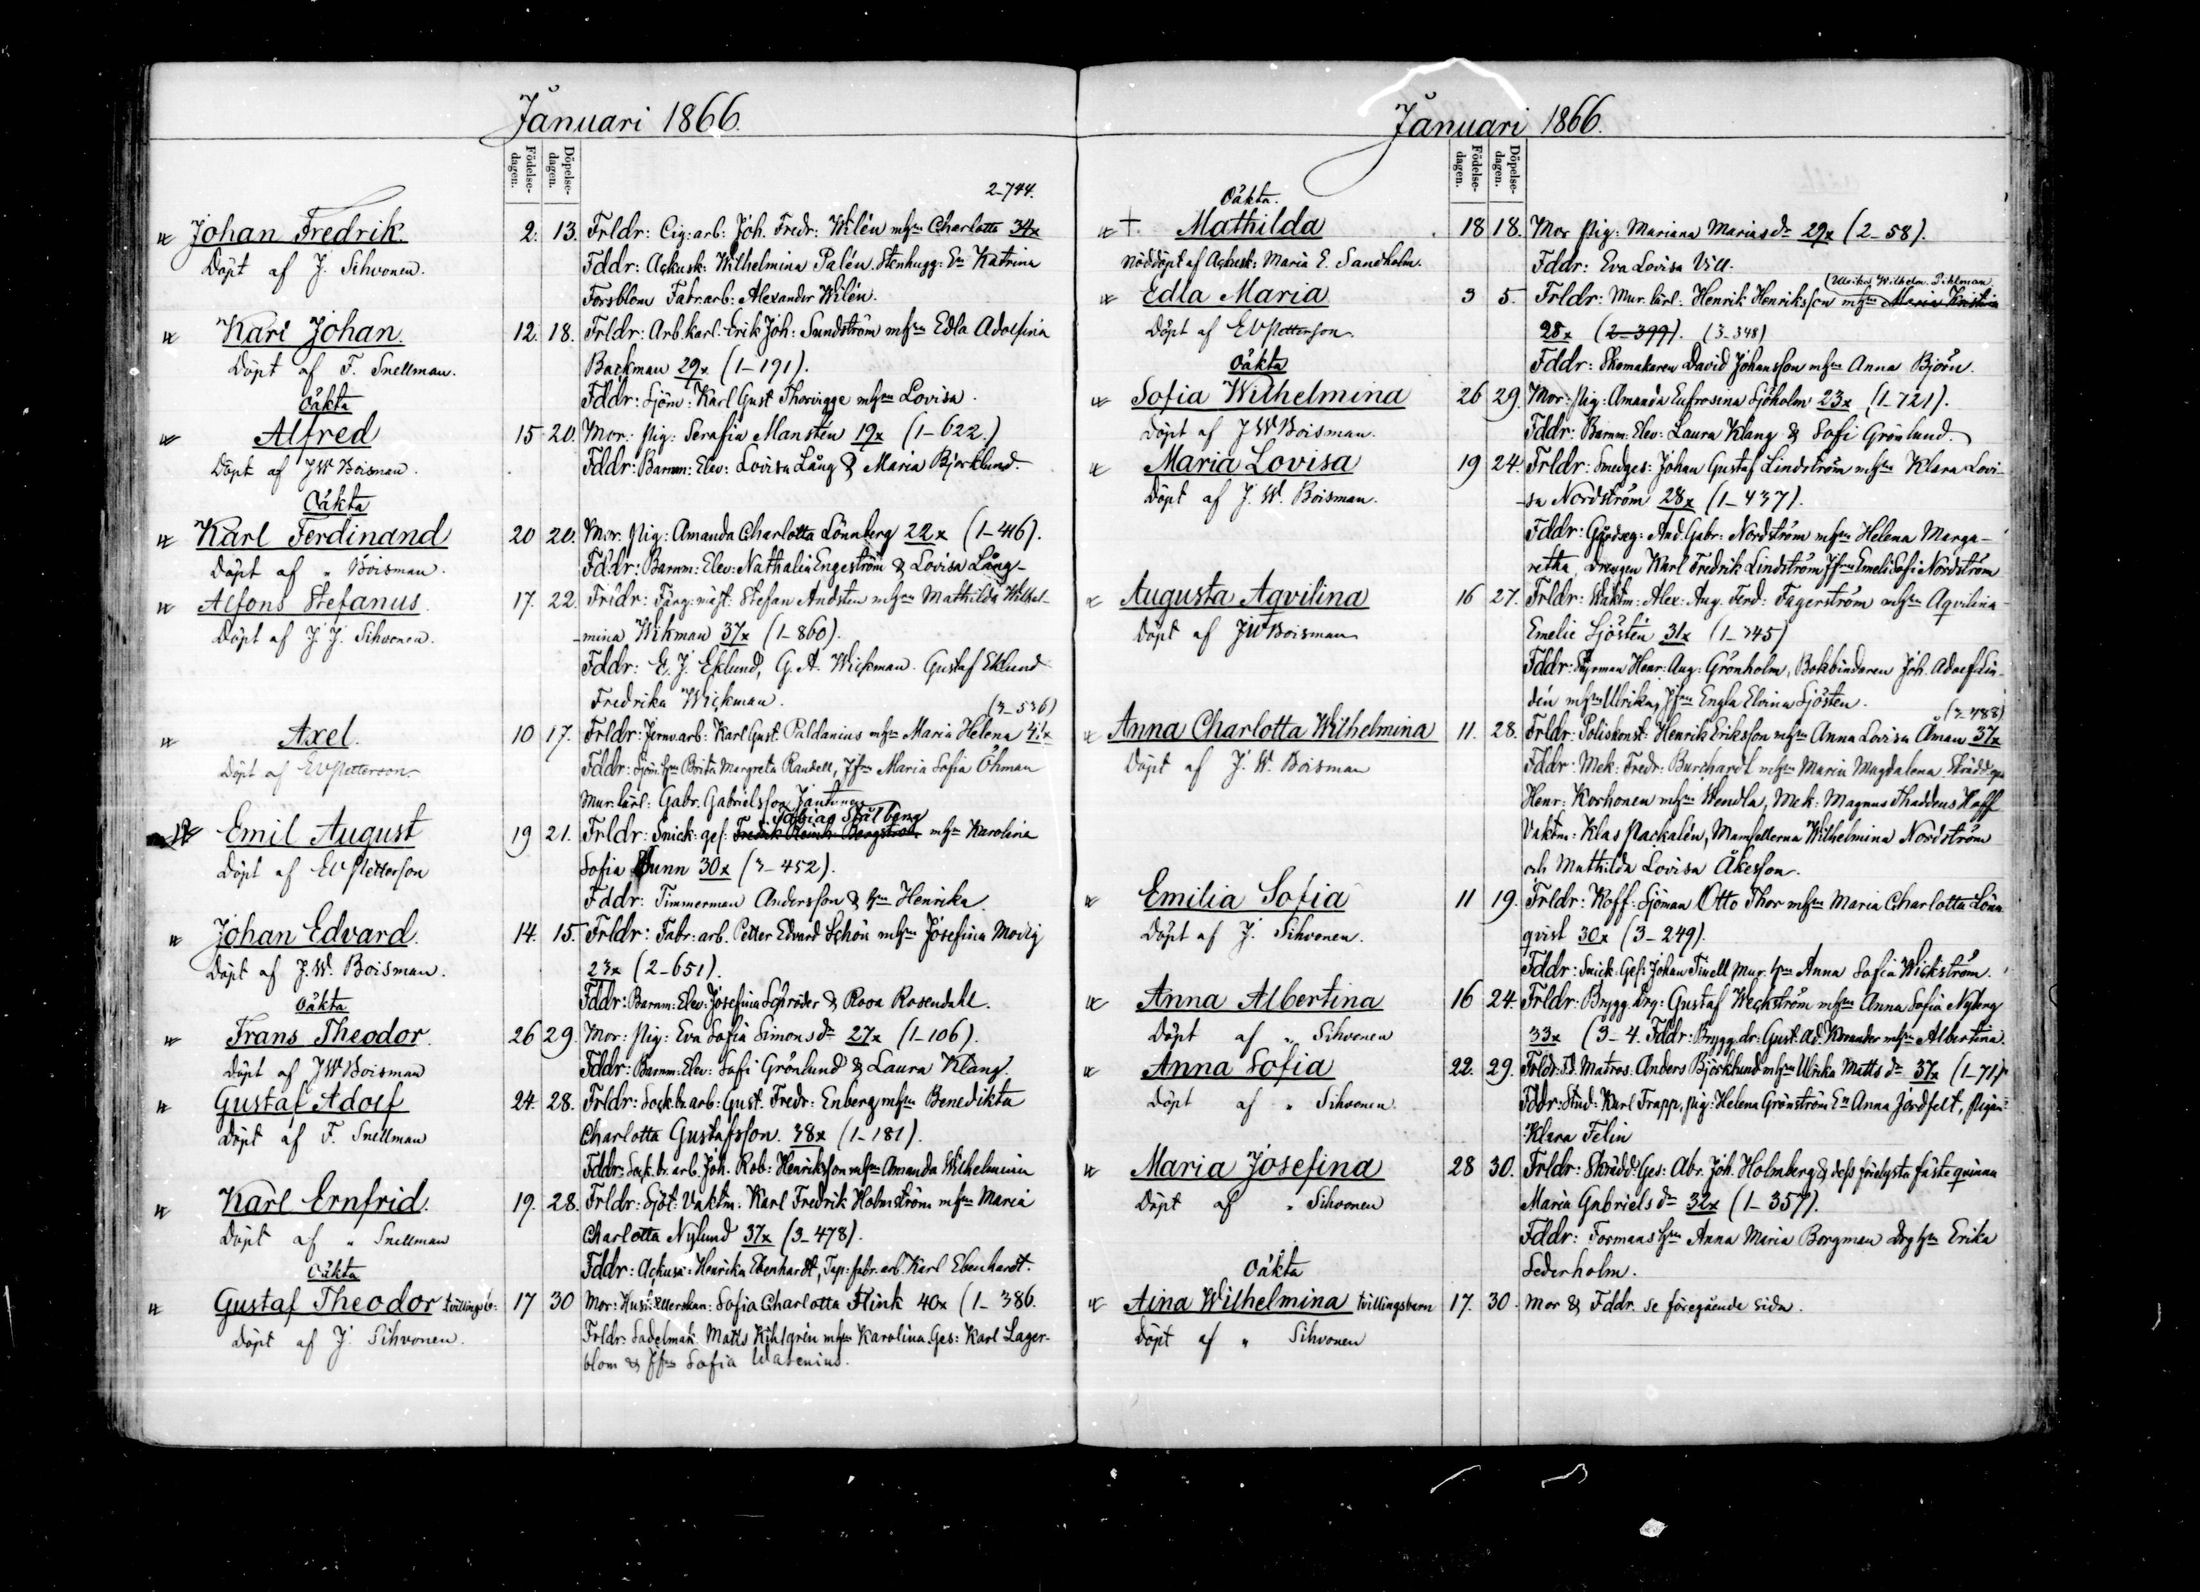 Januari 1866.
Födelse-dagen.
Döpelse-dagen.
2-744.
Johan Fredrik. 2. 13. Frldr: Cig: arb: Joh. Fredr: Wilén m hru Charlotta 34x
Döpt af J. Sihvonen. Fddr: Ackusk: Wilhelmina Palén. Stenhugg: En Katrina
Forsblom Fabr. arb: Alexander Wilén.
Karl Johan. 12. 18. Frldr: Arb. karl: Erik Joh: Sundström m hru Edla Adolfina
Döpt af F. Snellman. Backman 29x (1-191).
Fddr: Sjöm: Karl Gust Thorvigge m hru Lovisa.
Oäkta
Alfred 15 20. Mor: Pig: Serafia Mansten 19x (1-622.)
Döpt af J W Boisman. Fddr: Barnm: Elev: Lovisa Lång & Maria Björklund.
Oäkta
Karl Ferdinand 20 20. Mor: Pig: Amanda Charlotta Lönnberg 22x (1-416).
Döpt af " Boisman. Fddr: Barnm: Elev: Nathalia Engeström & Lovisa Lång
Alfons Stefanus. 17. 22. Frldr: Färg: mäst: Stefan Andsten m hru Mathilda Wilhel-
Döpt af J. J. Sihvonen. -mina Wikman 37x (1-860).
Fddr: E. J. Eklund, G. A. Wickman. Gustaf Eklund
Fredrika Wickman.
(3-536)
Axel. 10 17. Frldr: Jernv. arb: Karl Gust: Paldanius m hru Maria Helena 41x
Döpt af E V Petterson Fddr: Sjöm: hru Brita Margreta Randell, Jfru Maria Sofia Öhman
Mur. lärl: Gabr. Gabrielsson
Tobias Stålberg
Emil August 19 21. Frldr: Snick: ges: Fredrik Reinh. Bergström m hru Karolina
Döpt af E V Petterson Sofia Brunn 30x (3-452).
Fddr: Timmerman Andersson & hru Henrika.
Johan Edvard. 14. 15. Frldr: Fabr: arb. Petter Edvard Schön m hru Josefina Modig
Döpt af J. W. Boisman. 23x (2-651).
Fddr: Barnm: Elev: Josefina Schröder & Rosa Rosendahl.
Oäkta
Frans Theodor. 26 29. Mor: Pig: Eva Sofia Simonsdr 27x (1-106).
Döpt af J W Boisman Fddr: Barnm: Elev: Sofi Grönlund & Laura Klang.
Gustaf Adolf 24. 28. Frldr: Sock. br. arb: Gust. Fredr: Enberg m hru Benedikta
Döpt af F. Snellman Charlotta Gustafsson. 38x (1-181).
Fddr: Sock. br. arb. Joh. Rob: Henriksson m hru Amanda Wilhelmina
Karl Ernfrid. 19. 28. Frldr: Sjöt. Vaktm: Karl Fredrik Holmström m hru Maria
Döpt af " Snellman Charlotta Nylund 37x (3-478).
Fddr: Ackus: Henrika Ebenhardt, Tap: fabr. arb. Karl Ebenhardt.
Oäkta
Gustaf Theodor tvillingsb: 17 30 Mor: Sofia Charlotta Flink 40x (1-386.
Döpt af J. Sihvonen. Frldr: Sadelmak: Matts Kihlgrén m hru Karolina. Ges: Karl Lager-
blom & Jfru Sofia Wasenius.
Januari 1866.
Födelse-dagen.
Döpelse-dagen.
Oäkta.
+. Mathilda 18 18. Mor Pig: Mariana Mariasdr 29x (2-58).
Nöddöpt af Ackusk: Maria E. Sandholm. Fddr: Eva Lovisa Vill.
Ulrika Wilhelm. Pihlman
Edla Maria 3 5. Frldr: Mur. lärl: Henrik Henriksson m hru Maria Kristina
Döpt af E V Petterson. 28x (2-399). (3-348)
Fddr: Skomakaren David Johansson m hru Anna Björn.
Oäkta
Sofia Wilhelmina 26 29. Mor: Pig: Amanda Eufrosina Sjöholm 23x (1-721).
Döpt af J W Boisman. Fddr: Barnm: Elev: Laura Klang & Sofi Grönlund.
Maria Lovisa 19 24. Frldr: Smedges: Johan Gustaf Lindström m hru Klara Lovi-
Döpt af J. W. Boisman. -sa Nordström 28x (1-437).
Fddr: Gårdseg: And. Gabr: Nordström m hru Helena Marga-
retha, Drengen Karl Fredrik Lindström Jfru Emeli Sofi Nordström
Augusta Aqvilina 16 27. Frldr: Waktm: Alex: Aug. Ferd: Fagerström m hru Aqvilina
Döpt af J W Boisman Emelie Sjöstén 31x (1-345)
Fddr: Styrman Henr: Aug: Grönholm, Bokbindaren Joh. Adolf Lin-
dén m hru Ulrika, Jfru Engla Elvina Sjöstén.
(3-488)
Anna Charlotta Wilhelmina 11. 28. Frldr: Poliskonst: Henrik Eriksson m hru Anna Lovisa Åman 37x
Döpt af J. W. Boisman Fddr: Mek: Fredr: Burchardt m hru Maria Magdalena
Henr: Korhonen m hru Wendla, Mek: Magnus Thaddeus Hoff
Vaktm: Klas Packalén, Mamsellerna Wilhelmina Nordström
och Mathilda Lovisa Åkesson.
Emilia Sofia 11 19. Frldr: Koff: Sjöman Otto Thor m hru Maria Charlotta Lönn
Döpt af J. Sihvonen. qvist 30x (3-249).
Fddr: Snick: Ges: Johan Tinell Mur: hru Anna Sofia Wickström.
Anna Albertina 16 24. Frldr: Brygg. drg: Gustaf Weckström m hru Anna Sofia Nyberg
Döpt af " Sihvonen 33x (3-4. Fddr: Brygg. dr: Gust. Ad. Korander m hru Albertina.
Anna Sofia 22. 29. Frldr: F.d. Matros. Anders Björklund m hru Ulrika Mattsdr 37x (1-71)
Döpt af " Sihvonen. Fddr: Stud: Karl Trapp, Pig: Helena Grönström En Anna Jordfelt, Pigan:
Klara Felin
Maria Josefina 28 30. Frldr: Skrädd: Ges: Abr. Joh. Holmberg & dess förelysta fäste qvinna
Döpt af " Sihvonen Maria Gabrielsdr 32x (1-357).
Fddr: Formans hru Anna Maria Borgman Drg hru Erika
Sederholm.
Oäkta
Aina Wilhelmina tvillingsbarn 17. 30. Mor & Fddr. se föregående sida.
Döpt af " Sihvonen